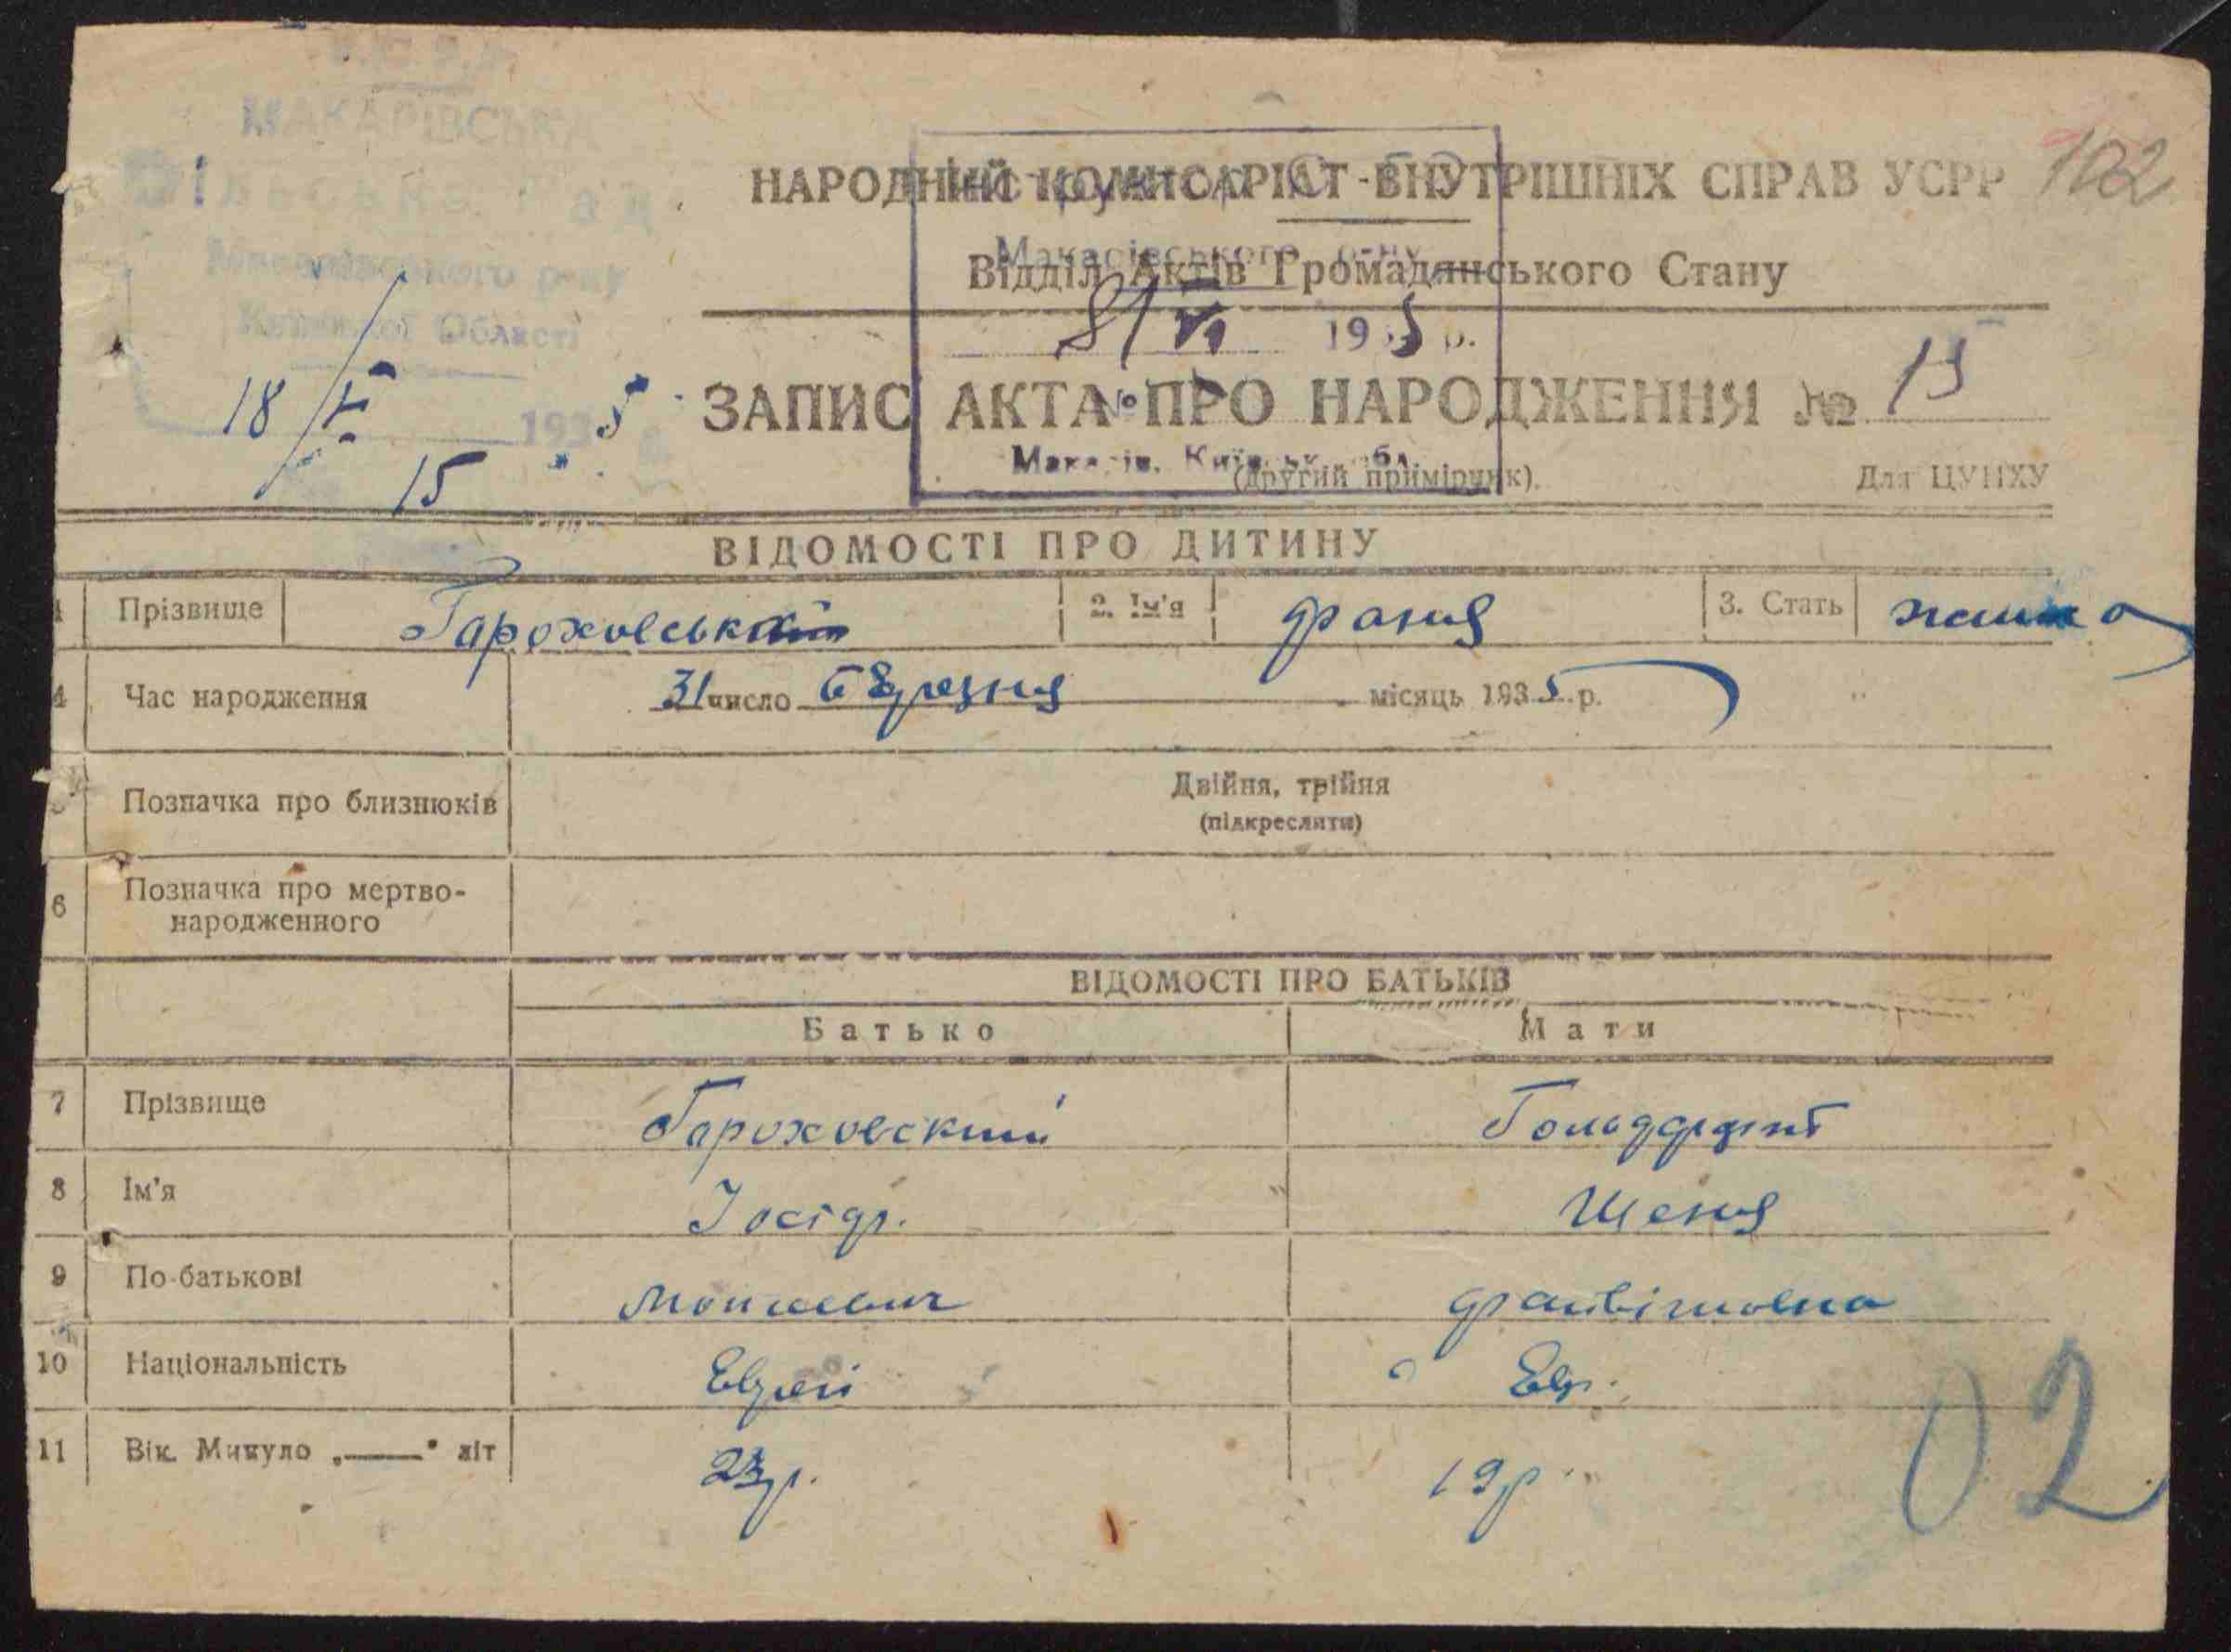 МАКАРІВСЬКА
Сільська Рада
Макарівського р-ну
Київської Області
18/IV 1935
15
НАРОДНІЙ КОМІСАРІЯТ ВНУТРІШНІХ СПРАВ УСРР 102
Макарівського р-ну
Відділ Актів Громадянського Стану
1935 р.
ЗАПИС АКТА ПРО НАРОДЖЕННЯ № 15
№
Макарів, Київськ. обл.
(другий примірник). Для ЦУНХУ
ВІДОМОСТІ ПРО ДИТИНУ
1 Прізвище Гарохов­ськ 2. Ім'я Фаня 3. Стать
4 Час народження 31 число березня місяць 1935 р.
Позначка про близнюків Двійня, трійня
(підкреслити)
6 Позначка про мертво-
народженного
ВІДОМОСТІ ПРО БАТЬКІВ
Батько Мати
7 Прізвище Гароховский
8 Ім'я Іосіф. Шеня
9 По-батькові
10 Національність Еврей Евр.
11 Вік. Минуло „——" літ 23 р. 19 р.
02